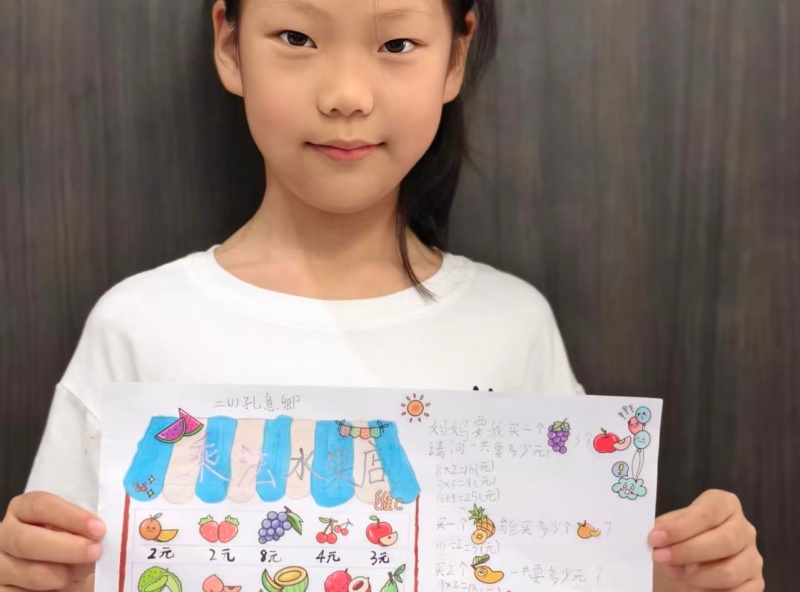 二(1)孔意卿
乘法水果店
维C
2元 2元 8元 4元 3元
妈妈要我买二个 3个
请问一共要多少元?
8×2=16(元)
3×3=9(元)
16+9=25(元)
买一个 能买多少个 ?
买2个 一共要多少元?